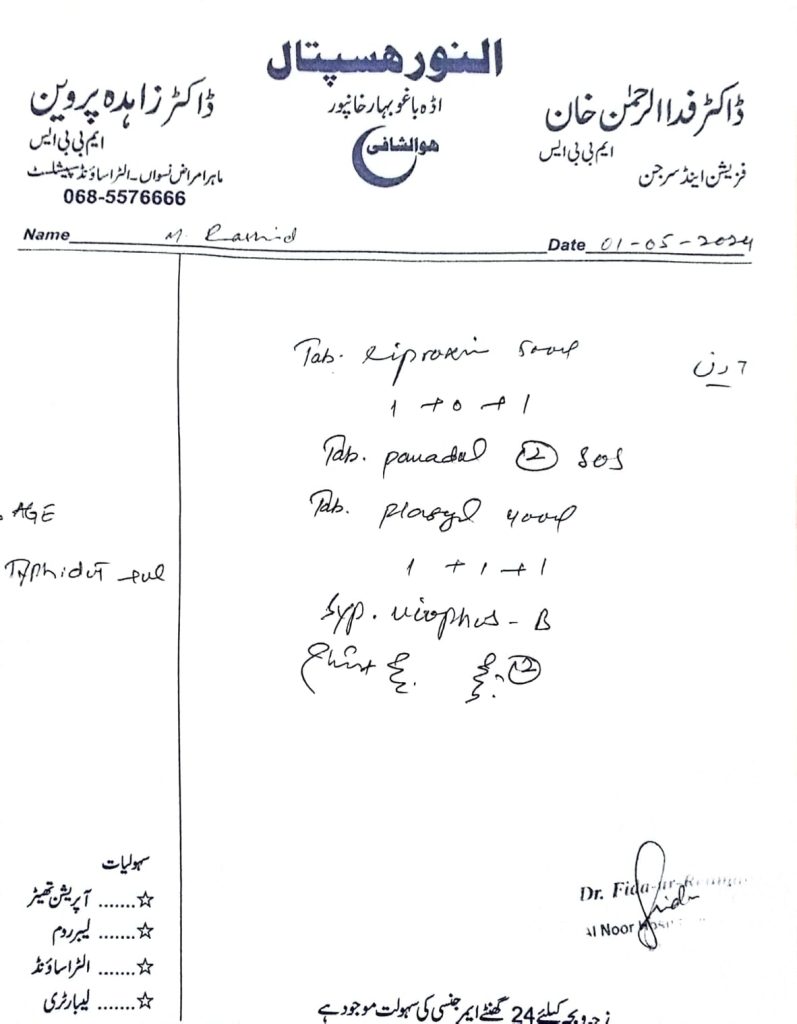 النور ہسپتال
اڈہ باغو بہار خانپور
ھوالشافی
ڈاکٹر فداالرحمٰن خان
ایم بی بی ایس
فزیشن اینڈ سرجن
ڈاکٹر زاہدہ پروین
ایم بی بی ایس
ماہر امراض نسواں ۔ الٹراساؤنڈ سپیشلسٹ
068-5576666
Name M. Rashid Date 01-05-2024
Tab. ciproxin 500mg
7 دن
1 + 0 + 1
Tab. panadol 12 SOS
AGE
Tab. 400mg
Typhidot +ve
1 + 1 + 1
Syp. - B
12
سہولیات
☆....... آپریشن تھیٹر
☆....... لیبر روم
☆....... الٹراساؤنڈ
☆....... لیبارٹری
Dr. Fida-ur-Rehman
Al Noor Hospital
زچہ و بچہ کیلئے 24 گھنٹے ایمرجنسی کی سہولت موجود ہے